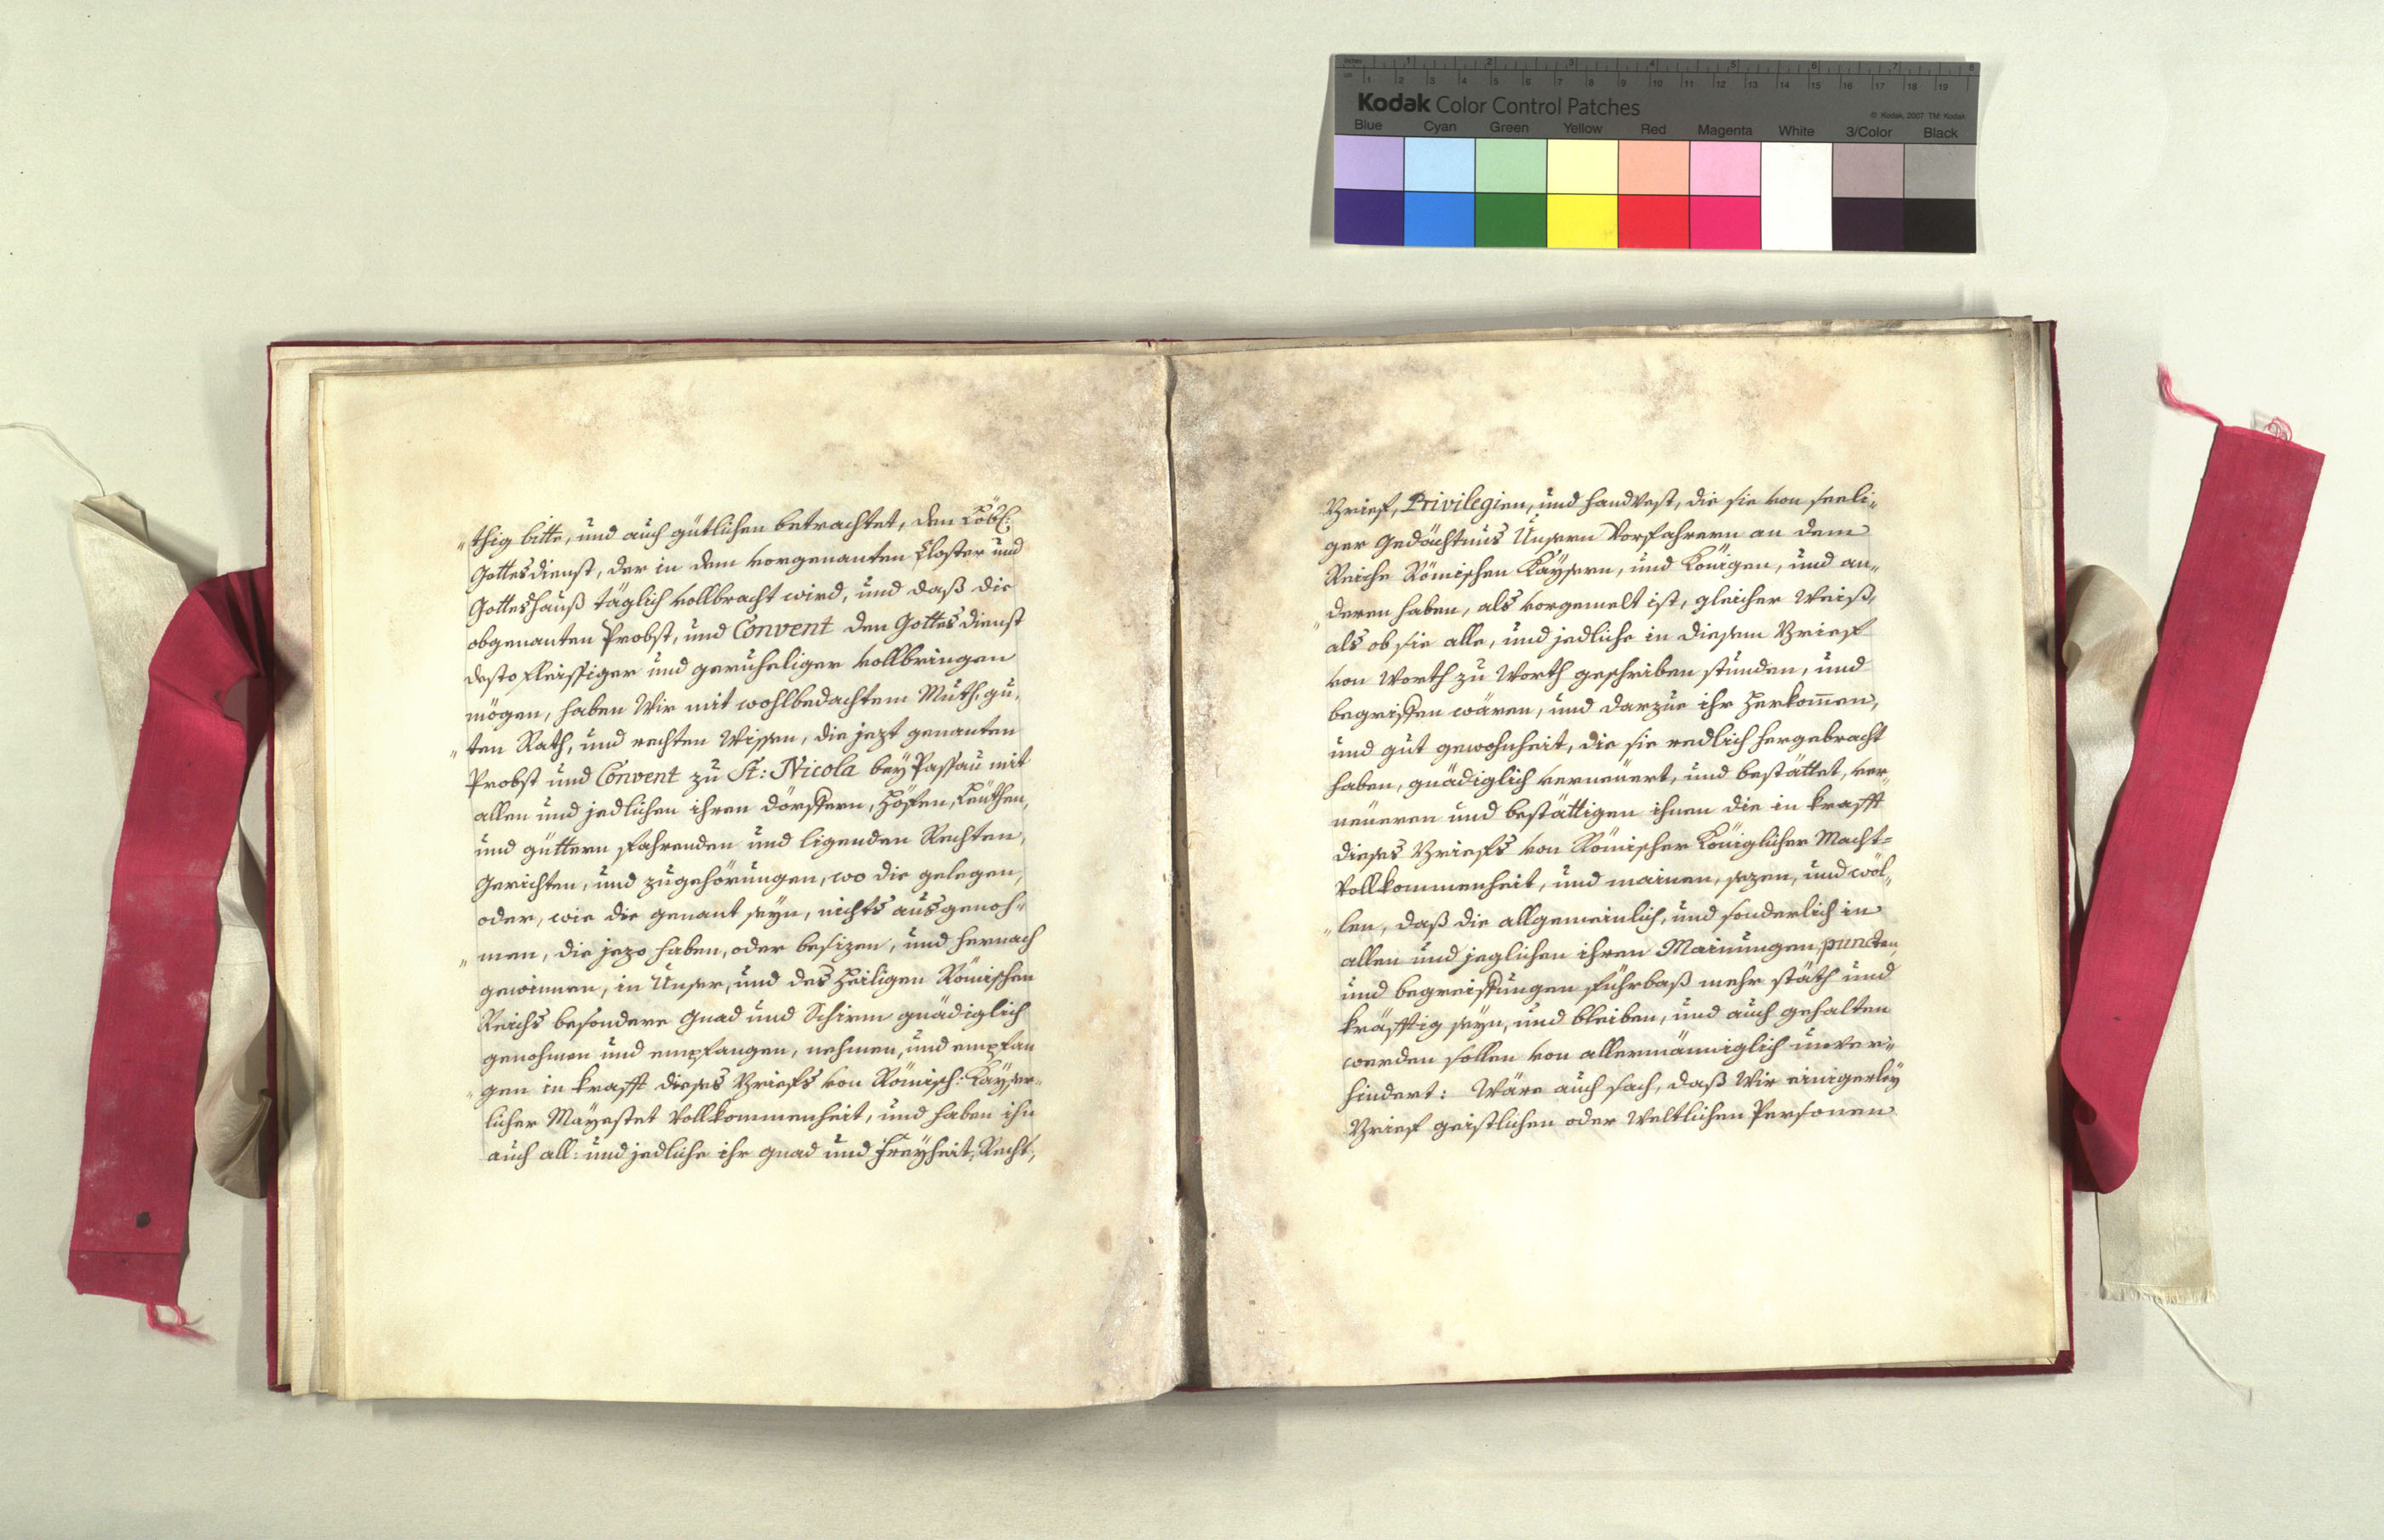 Kodak Color Control Patches
© Kodak, 2007 TM: Kodak
Blue Cyan Green Yellow Red Magenta White 3/Color Black
"thig bitte, und auch gütlichen betrachtet, den Löbl:
Gottesdienst, der in dem vorgenanten Closter und
Gotteshauß täglich vollbracht wird, und daß die
obgenanten Probst, und Convent den Gottesdienst
desto fleissiger und geruheliger vollbringen
mögen, haben Wir mit wohlbedachtem Muth, gu„
"ten Rath, und rechten Wissen, die jezt genanten
Probst und Convent zu St: Nicola bey Passau mit
allen und jedlichen ihren dörffern, Höfen, Leuthen,
und güttern fahrenden und ligenden Rechten,
Gerichten, und zugehörungen, wo die gelegen,
oder, wie die genant seyn, nichts ausgenoh„
"men, die jezo haben, oder besizen, und hernach
gewinnen, in Unser, und des Heiligen Römischen
Reichs besondere Gnad und Schirm gnädiglich
genohmen und empfangen, nehmen, und empfan
"gen in krafft dieses Brieffs von Römisch: Kayser„
licher Mayestet Vollkommenheit, und haben ihn
auch all: und jedliche ihr gnad und Freyheit, Recht,
Brief, Privilegien, und handvest, die sie von seeli„
ger Gedächtnus Unsern Vorfahrern an dem
Reiche Römischen Kaysern, und Königen, und an„
"deren haben, als vorgemelt ist, gleicher Weiß,
als ob sie alle, und jedliche in diesem Brief
von Worth zu Worth geschriben stunden, und
begriffen wären, und darzue ihr Herkom̅en,
und gut gewohnheit, die sie redlich hergebracht
haben, gnädiglich verneuert, und bestättet, ver„
neueren und bestättigen ihnen die in krafft
dieses Briefs von Römischer Königlicher Macht=
Vollkommenheit, und mainen, sezen, und wöl„
"len, daß die allgemeinlich, und sonderlich in
allen und jeglichen ihren Mainungen, puncten,
und begreiffungen führbaß mehr stäth und
kräfftig seyn, und bleiben, und auch gehalten
werden sollen von allermänniglich unver„
hindert: Wäre auch sach, daß Wir einigerley
Brief geistlichen oder Weltlichen Personen